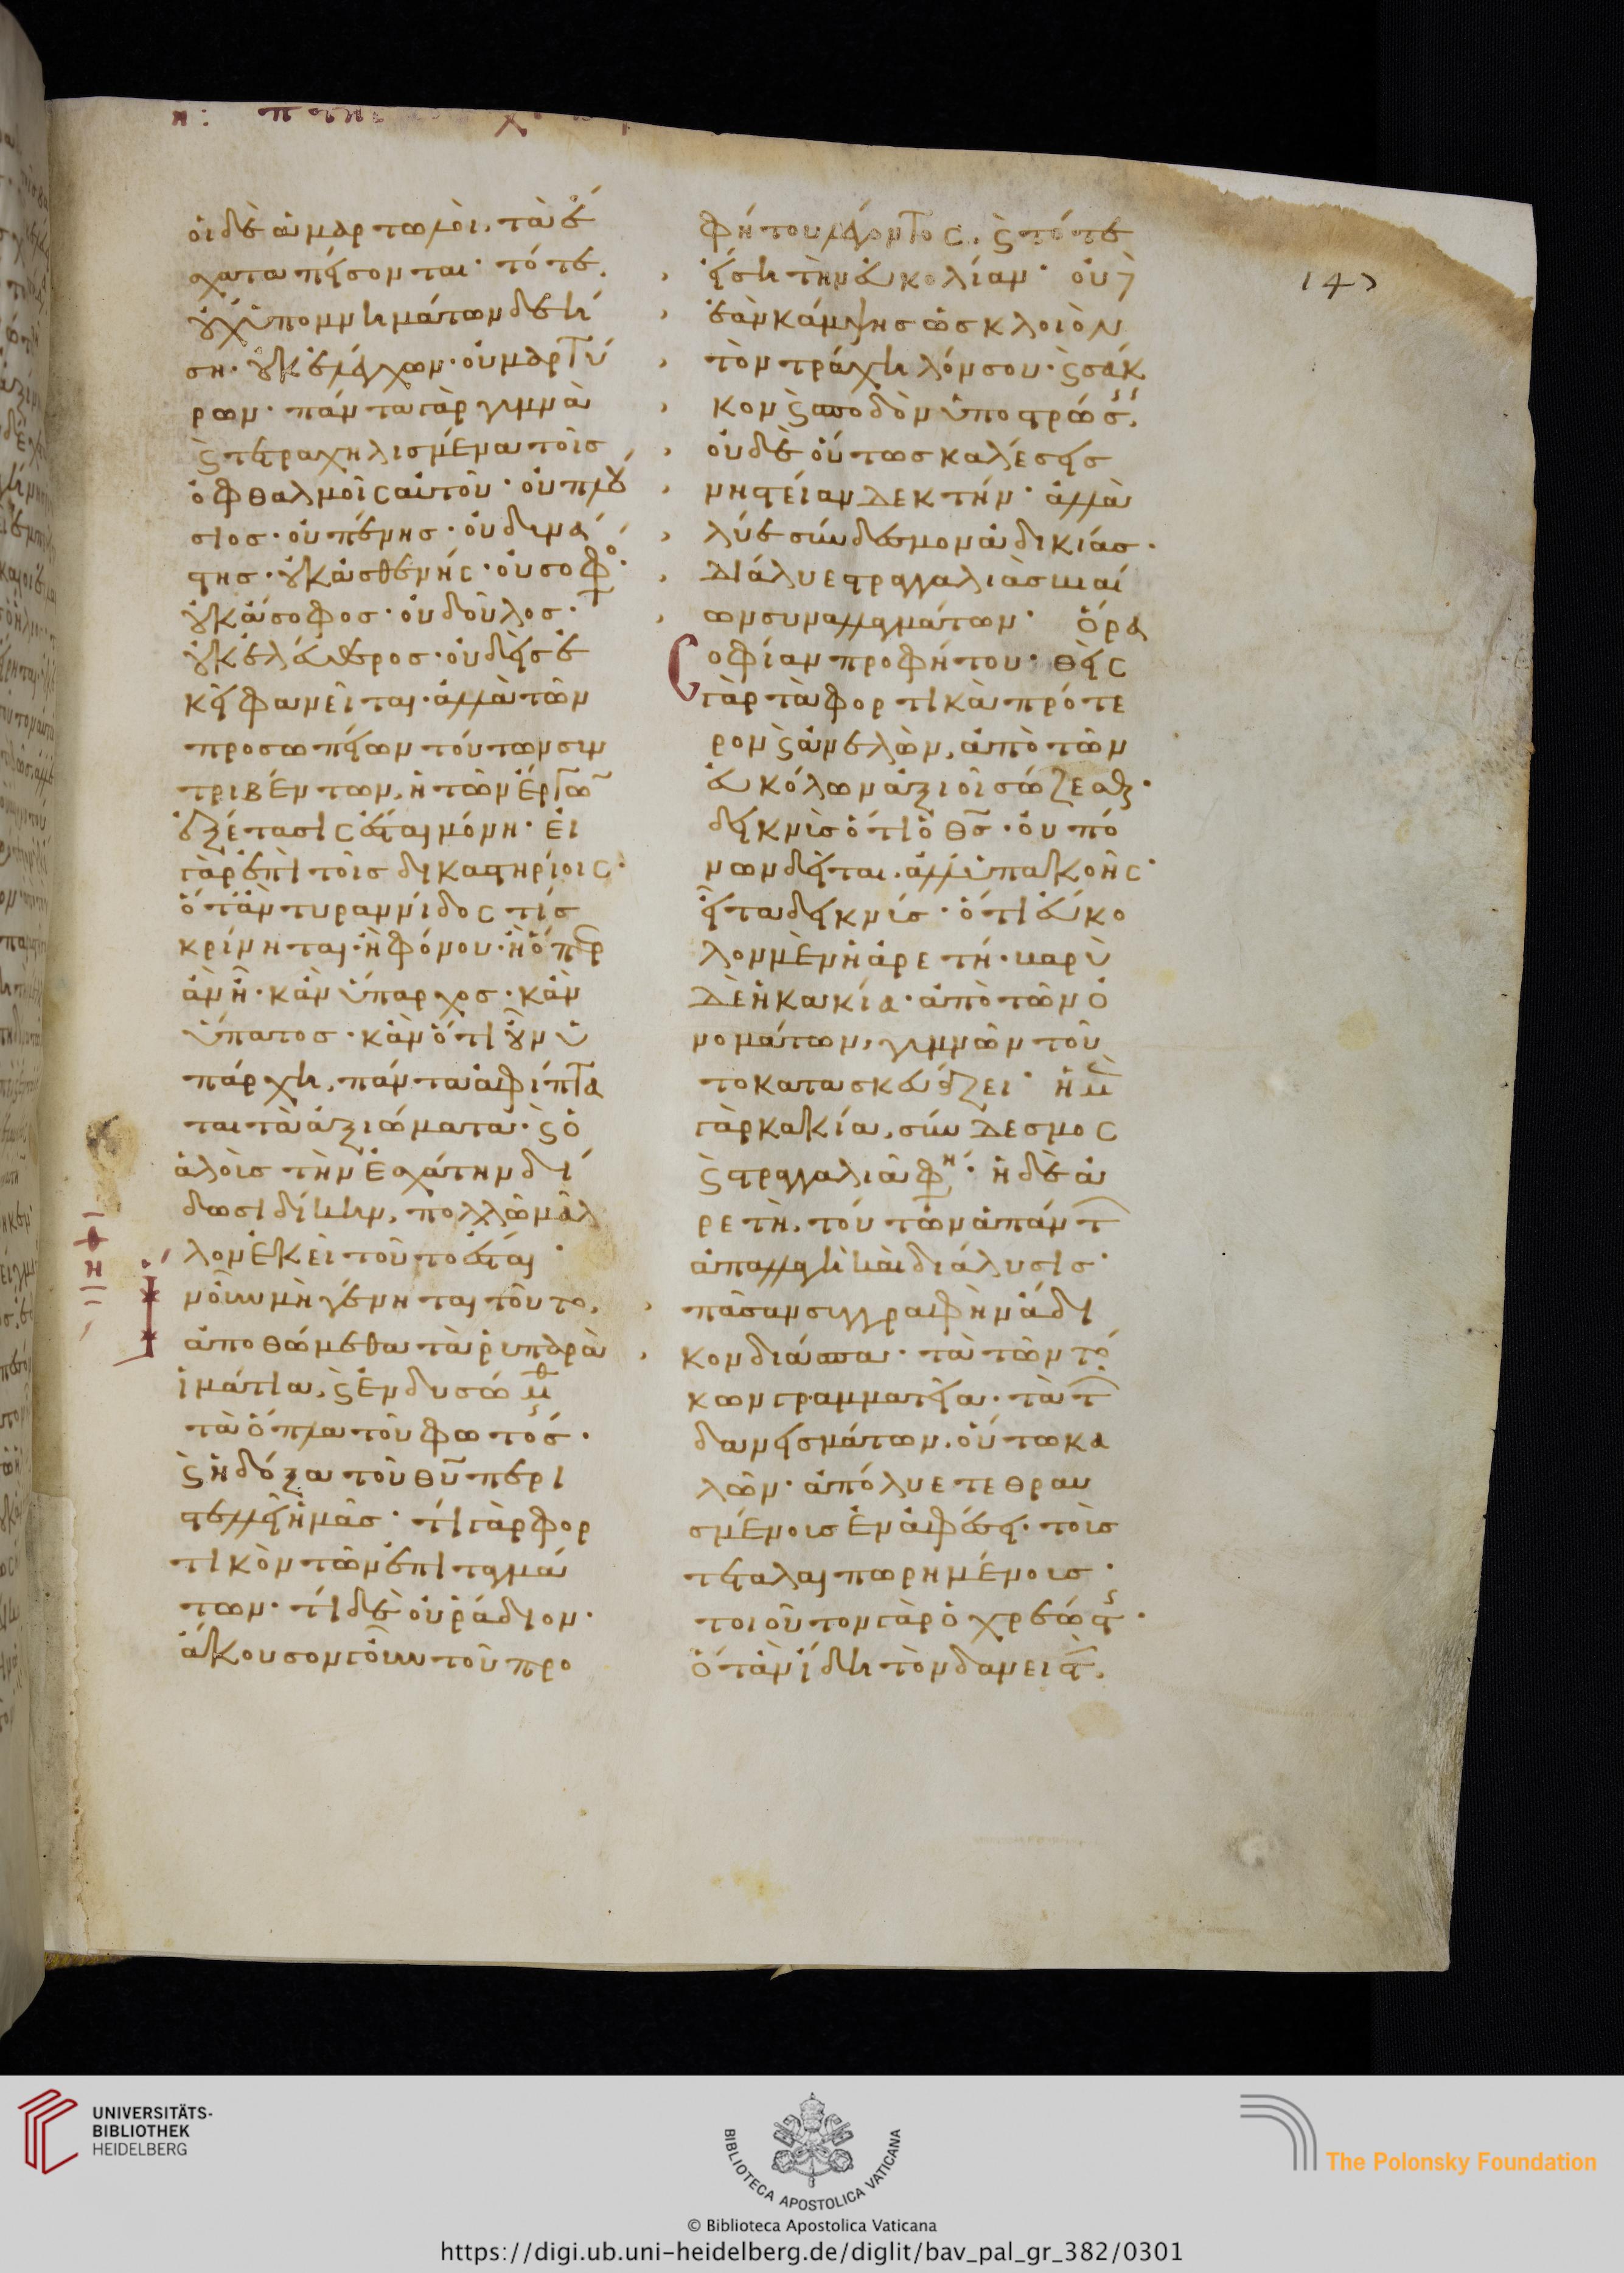 147
οἱ δὲ ἁμαρτωλοὶ, τὰ ἔ
σχατα πείσονται· τότε
οὐχ ὑπομνημάτων δεή
ση· οὐκ ἐλέγχων· οὐ μαρτύ
ρων· πάντα γὰρ γυμνὰ
καὶ τετραχηλισμένα τοῖς
ὀφθαλμοῖς αὐτοῦ· οὐ πλού
σιος· οὐ πένης· οὐ δυνά
στης· οὐκ ἀσθενής· οὐ σοφὸς·
οὐκ ἄσοφος· οὐ δοῦλος·
οὐκ ἐλεύθερος· οὐδεὶς ἐ
κεῖ φανεῖται· ἀλλὰ τῶν
προσωπείων τούτων συν
τριβέντων, ἡ τῶν ἔργων
ἐξέτασις ἔσται μόνη· εἰ
γὰρ ἐπὶ τοῖς δικαστηρίοις·
ὅταν τυραννίδος τίς
κρίνηται· ἢ φόνου· ἢ ὅπερ
ἂν ἦ· κἂν ὕπαρχος· κἂν
ὕπατος· κἂν ὅτι οὖν ὑ
πάρχη, πάντα ἀφίπτα
ται τὰ ἀξιώματα· καὶ ὁ
ἁλοὺς τὴν ἐσχάτην δί
δωσι δίκην, πολλῶ μᾶλ
λον ἐκεῖ τοῦτο ἔσται·
ἵν οὖν μὴ γένηται τοῦτο,
ἀποθώμεθα τὰ ῥυπαρὰ
ἱμάτια, καὶ ἐνδυσώμεθα
τὰ ὅπλα τοῦ φωτός·
καὶ ἡ δόξα τοῦ θυ περι
στελλεῖ ἡμᾶς· τί γὰρ φορ
τικὸν τῶν ἐπιταγμά
των· τί δὲ οὐ ράδιον·
ἄκουσον γοῦν τοῦ προ
φήτου λέγοντος, καὶ τότε
εἴση τὴν εὐκολίαν· οὐδ
ἐὰν κάμψης ὡς κλοιὸν
τὸν τράχηλόν σου· καὶ σάκ
κον καὶ σποδὸν ὑποστρώσης,
οὐδὲ οὕτως καλέσεις
νηστείαν δεκτήν· ἀλλὰ
λύε σύνδεσμον ἀδικίας·
διάλυε στραγγαλιὰς βιαί
ων συναλλαγμάτων· ὅρα
σοφίαν προφήτου· θεὶς
γὰρ τὰ φορτικὰ πρότε
ρον καὶ ἀνελὼν, ἀπὸ τῶν
εὐκόλων ἀξιοῖ σώζεσθαι·
δεικνὺς ὅτι ὁ θς· οὐ πό
νων δεῖται· ἀλλ' ὑπακοῆς·
εἶτα δεικνύς· ὅτι εὔκο
λον μὲν ἡ ἀρετή· βαρὺ
δὲ ἡ κακία· ἀπὸ τῶν ὀ
νομάτων, γυμνῶν τοῦ
το κατασκευάζει· ἡ μὲν
γὰρ κακία, σύνδεσμος
καὶ στραγγαλιά φη· ἡ δὲ ἀ
ρετὴ, τούτων ἁπάντων
ἀπαλλαγὴ καὶ διάλυσις·
πᾶσαν συγγραφὴν ἄδι
κον διάσπα· τὰ τῶν τό
κων γραμματεῖα· τὰ τῶν
δανεισμάτων. οὕτω κα
λῶν· ἀπόλυε τεθραυ
σμένους ἐν ἀφέσει· τοὺς
τεταλαιπωρημένους·
τοιοῦτον γὰρ ὁ χρεώστης·
ὅταν ἴδη τὸν δανειστὴν,
UNIVERSITÄTS-
BIBLIOTHEK
HEIDELBERG
BIBLIOTECA APOSTOLICA VATICANA
The Polonsky Foundation
© Biblioteca Apostolica Vaticana
https://digi.ub.uni-heidelberg.de/diglit/bav_pal_gr_382/0301